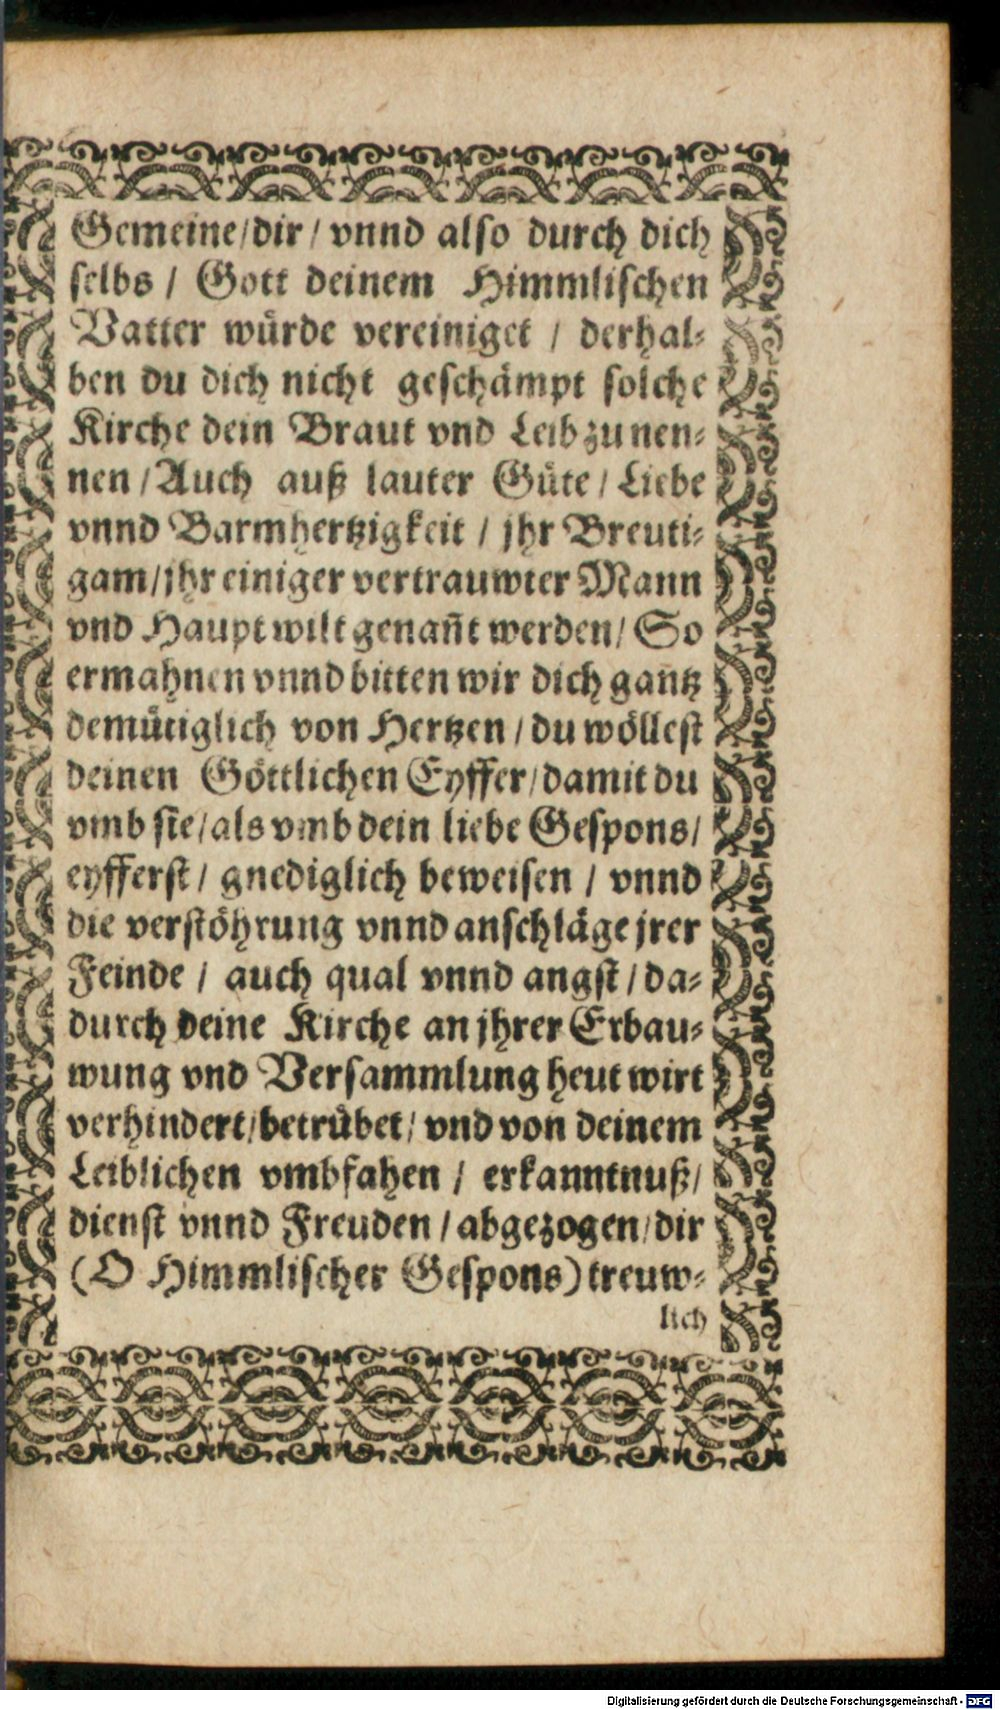 Gemeine/dir/ vnnd also durch dich
selbs / Gott deinem Himmlischen
Vatter würde vereiniget / derhal-
ben du dich nicht geschämpt solche
Kirche dein Braut vnd Leib zu nen-
nen / Auch auß lauter Güte / Liebe
vnnd Barmhertzigkeit / jhr Breuti-
gam/jhr einiger vertrauwter Mann
vnd Haupt wilt genañt werden/ So
ermahnen vnnd bitten wir dich gantz
demütiglich von Hertzen / du wöllest
deinen Göttlichen Eyffer/damit du
vmb sie/als vmb dein liebe Gespons/
eyfferst / gnediglich beweisen / vnnd
die verstöhrung vnnd anschläge jrer
Feinde / auch qual vnnd angst / da-
durch deine Kirche an jhrer Erbau-
wung vnd Versammlung heut wirt
verhindert/betrübet/ vnd von deinem
Leiblichen vmbfahen / erkanntnuß/
dienst vnnd Freuden / abgezogen/dir
(O Himmlischer Gespons) treuw-
lich
Digitalisierung gefördert durch die Deutsche Forschungsgemeinschaft - DFG